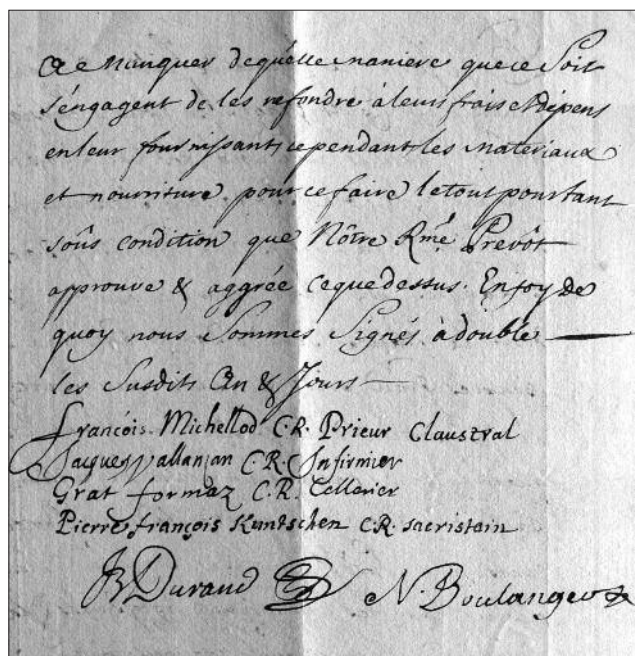 a Manquer de quelle maniere que ce Soit
s'engagent de les refondre à leurs frais et dépens
en leur fournissants cependant les Materiaux
et nourriture pour ce faire le tout pourtant
soûs condition que Nôtre Rmé Prevôt
approuve & aggrée ce que dessus. En foy de
quoy nous Sommes Signés à double
les Susdits An & Jours
françois Michellod C.R. Prieur Claustral
Jacques Vallanjan C.R. Infirmier
Grat formaz C.R. Cellerier
Pierre françois Kuntschen C.R. sacristain
JB Durand N. Boulangeot